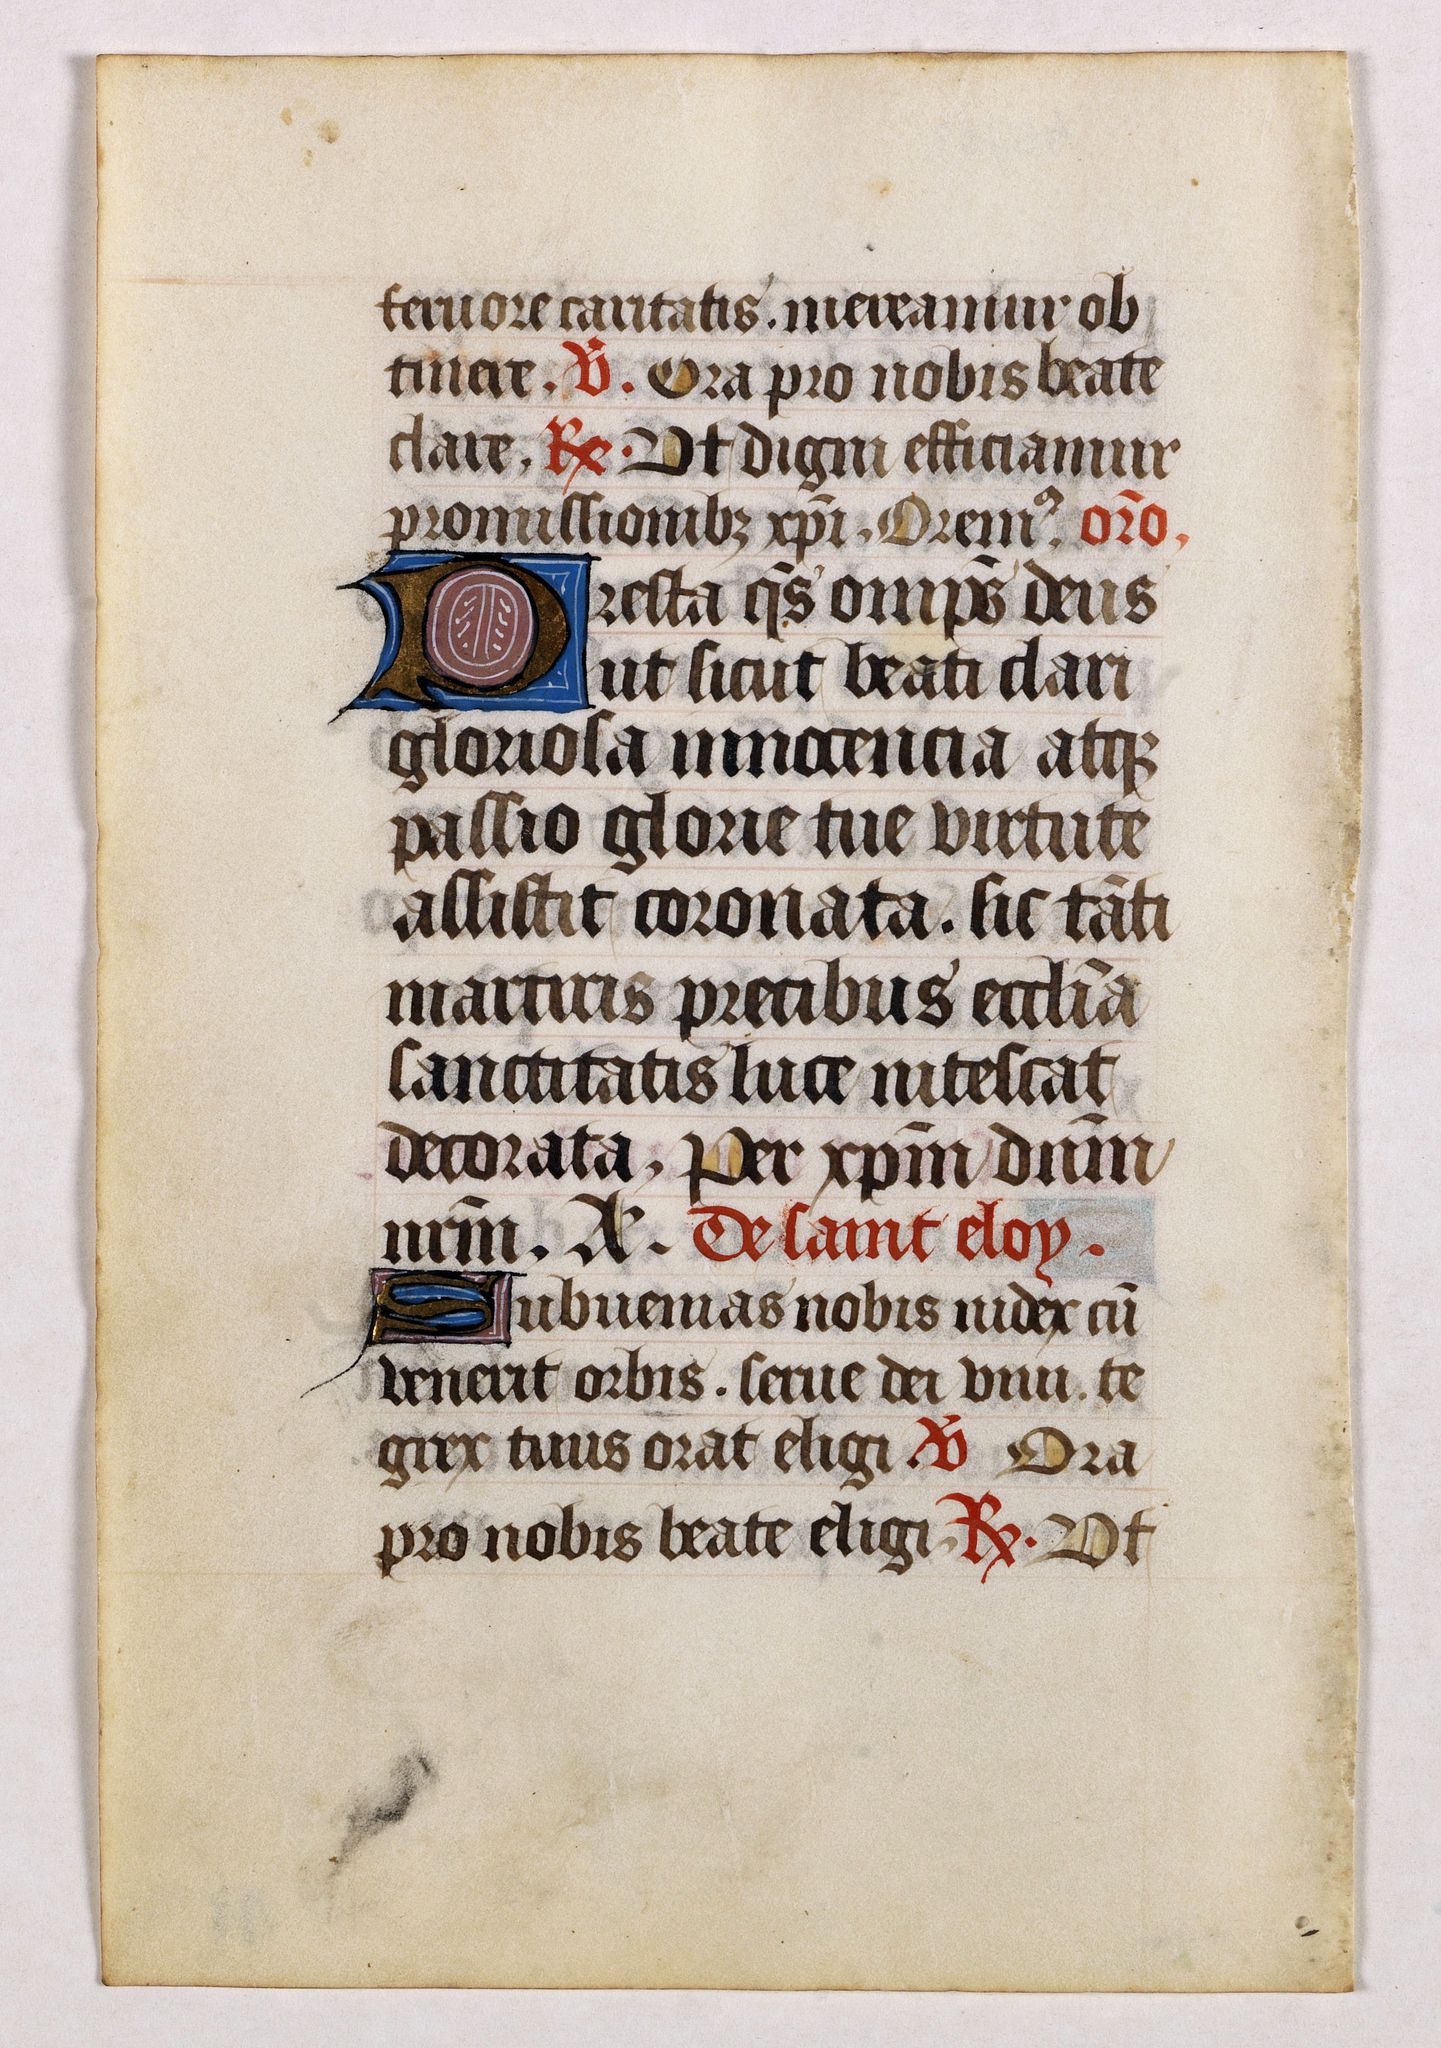 feruore caritatis. mereamur ob
tinere. ℣. Ora pro nobis beate
clare. ℟. Vt digni efficiamur
promissionibꝫ xp̄i. Oremꝰ. or̄o.
Presta q̄s omp̄s deus
ut sicut beati clari
gloriosa innocencia atqꝫ
passio glorie tue virtute
assistit coronata. sic tāti
martiris precibus eccl̄ia
sanctitatis luce nitescat
decorata. Per xp̄m dn̄m
nr̄m. Ae. De saint eloy.
Subuenias nobis iudex cū
venerit orbis. serue dei viui. te
grex tuus orat eligi. ℣ Ora
pro nobis beate eligi. ℟. Vt